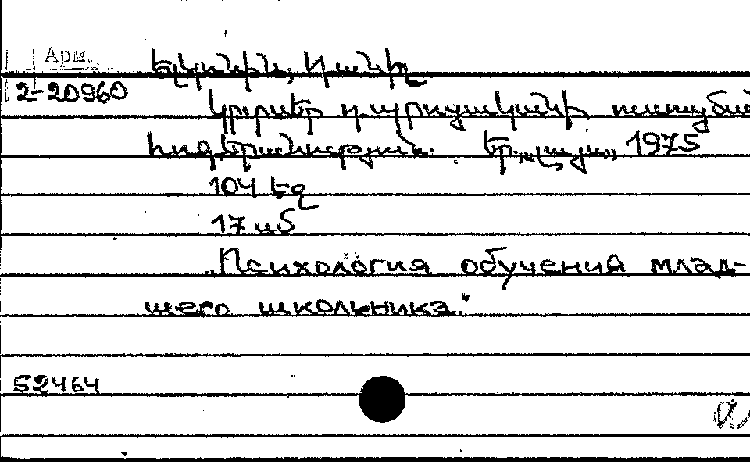 Арм. Էլկոնին, Դանիլ
2-20960 Կրտսեր դպրոցականի ուսուցման
հոգեբանություն. Եր., „Լույս„, 1975
104 էջ
17 սմ
„Психология обучения млад-
шего школьника."
52464